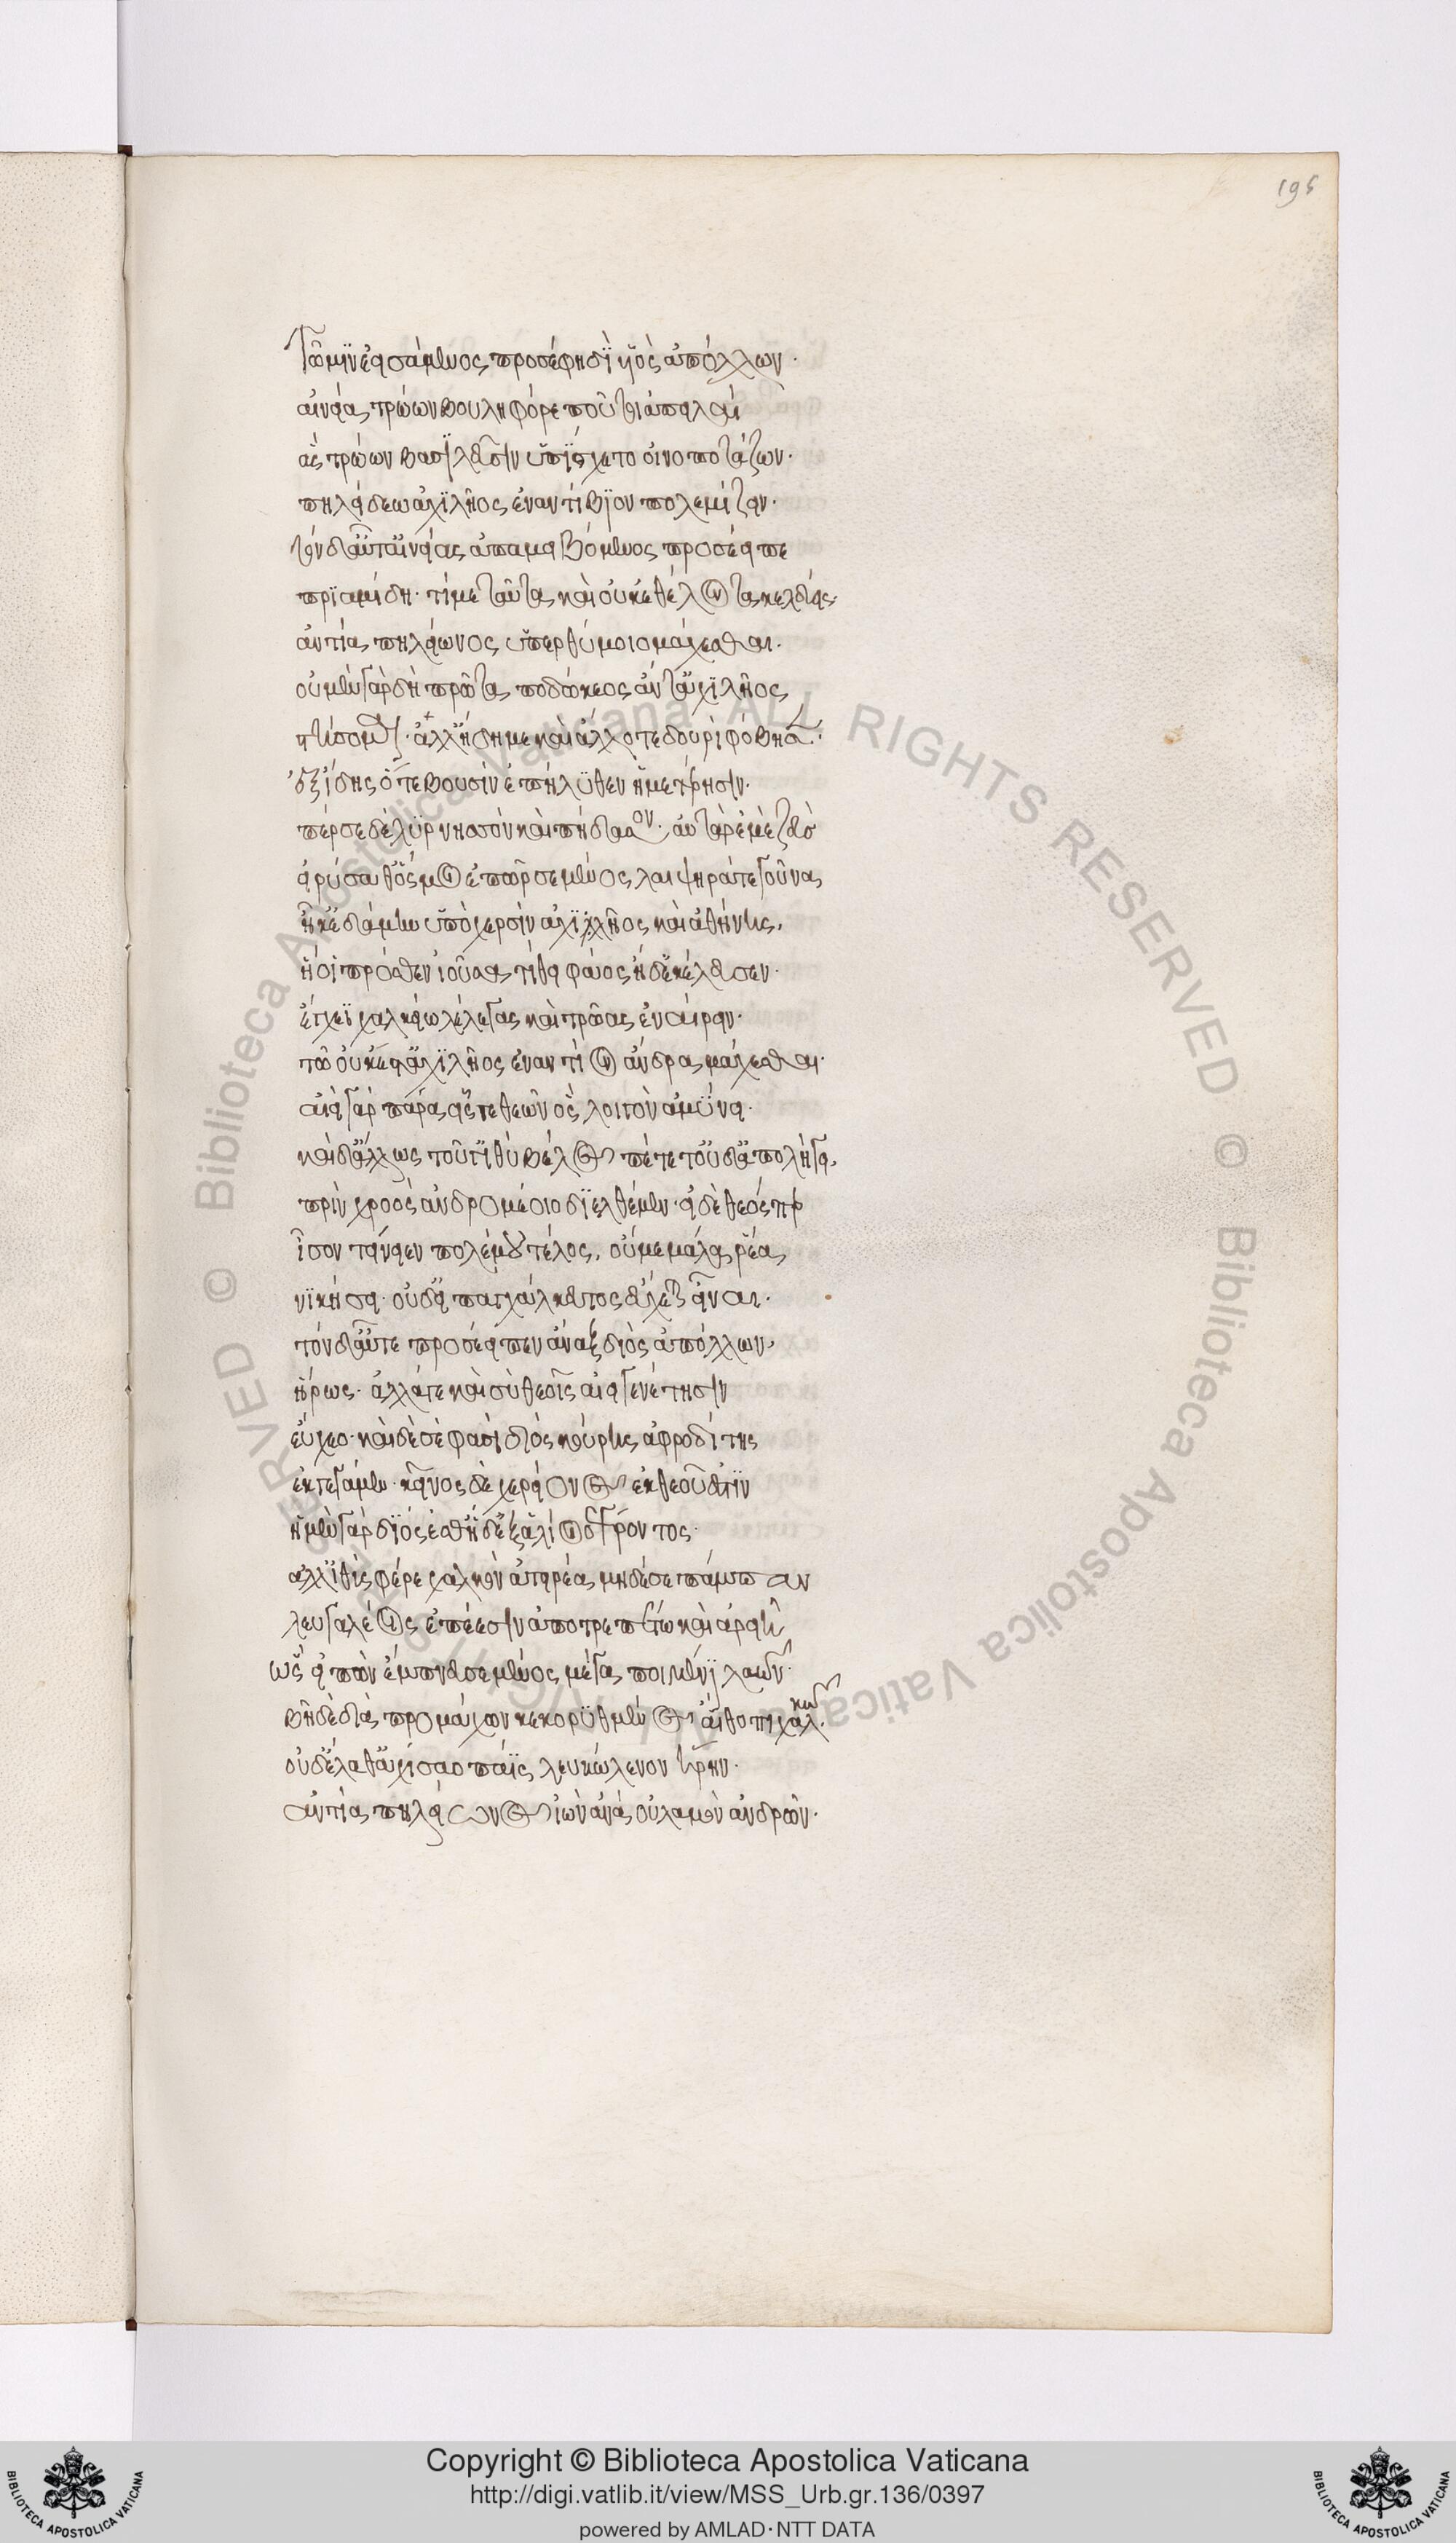 195
Τῶ μϊν ἐεισάμενος προσέφη δϊὸς υἱὸς ἀπόλλων·
αἰνεία τρώων βουληφόρε ποῦ τοι ἀπειλαί
ἃς τρώων βασϊλεῦσιν ὑπΐσχετο οἰνοποτάζων·
πηλείδεω ἀχϊλῆος ἐναντίβϊον πολεμίζειν·
τὸν δ' αὖτ' αἰνείας ἀπαμειβόμενος προσέειπε
πρϊαμίδη· τί με ταῦτα καὶ οὐκ ἐθέλοντα κελεύεις·
ἀντία πηλείωνος ὑπερθύμοιο μάχεσθαι·
οὐ μὲν γὰρ δὴ πρῶτα ποδώκεος ἄντ' ἀχϊλῆος
στήσομαι· ἀλλ' ἤδη με καὶ ἄλλοτε δουρὶ φόβησεν·
ἐξ ἴδης ὅτε βουσὶν ἐπήλϋθεν ἡμετέρησιν·
πέρσε δὲ λϋρνησσὸν καὶ πήδασον· αὐτὰρ ἐμὲ ζεὺς
εἰρύσαθ' ὅς μοι ἐπῶρσε μένος λαιψηρά τε γοῦνα
ἦ κ' ἐδάμην ὑπὸ χερσὶν ἀχϊλλῆος καὶ ἀθήνης,
ἥ οἱ πρόσθεν ἰοῦσα τίθει φάος ἠδ' ἐκέλευσεν·
ἔγχεϊ χαλκείω λέλεγας καὶ τρῶας ἐναίρειν·
τῶ οὐκ ἔστ' ἀχϊλῆος ἐναντίον ἄνδρα μάχεσθαι·
αἰεὶ γὰρ πάρα εἷς τε θεῶν ὃς λοιγὸν ἀμϋνει·
καὶ δ' ἄλλως τοῦ γ' ἰθὺ βέλος πέτετ' οὐδ' ἀπολήγει,
πρὶν χροὸς ἀνδρομέοιο δϊελθέμεν· εἰ δὲ θεός περ
ἶσον τείνειεν πολέμου τέλος, οὔ με μάλα ῥέα
νϊκήσει· οὐδ' εἰ παγχάλκεος εὔχεται εἶναι·
τὸν δ' αὖτε προσέειπεν ἄναξ διὸς ἀπόλλων,
ἥρως· ἀλλά γε καὶ σὺ θεοῖς αἰειγενέτησιν
εὔχεο· καὶ δὲ σέ φασὶ διὸς κούρης ἀφροδίτης
ἐκγεγάμεν· κεῖνος δὲ χερείονος ἐκ θεοῦ ἐστϊν
ἡ μὲν γὰρ δϊός ἐσθ' ἡ δ' ἐξ ἁλίοιο γέροντος·
ἀλλ' ἰθὺς φέρε χαλκὸν ἀτειρέα μηδέ σε πάμπαν
λευγαλέοις ἐπέεσσιν ἀποτρεπέτω καὶ ἀρειῆ
ὣς εἰπὼν ἔμπνευσε μένος μέγα ποιμένϊ λαῶν·
βῆ δὲ διὰ προμάχων κεκορϋθμένος αἴθοπι χαλκῶ·
οὐδ' ἔλαθ' ἀγχίσαο πάϊς λευκώλενον ἥρην·
ἀντία πηλείωνος ἰὼν ἀνὰ οὐλαμὸν ἀνδρῶν·
Copyright © Biblioteca Apostolica Vaticana
http://digi.vatlib.it/view/MSS_Urb.gr.136/0397
powered by AMLAD·NTT DATA